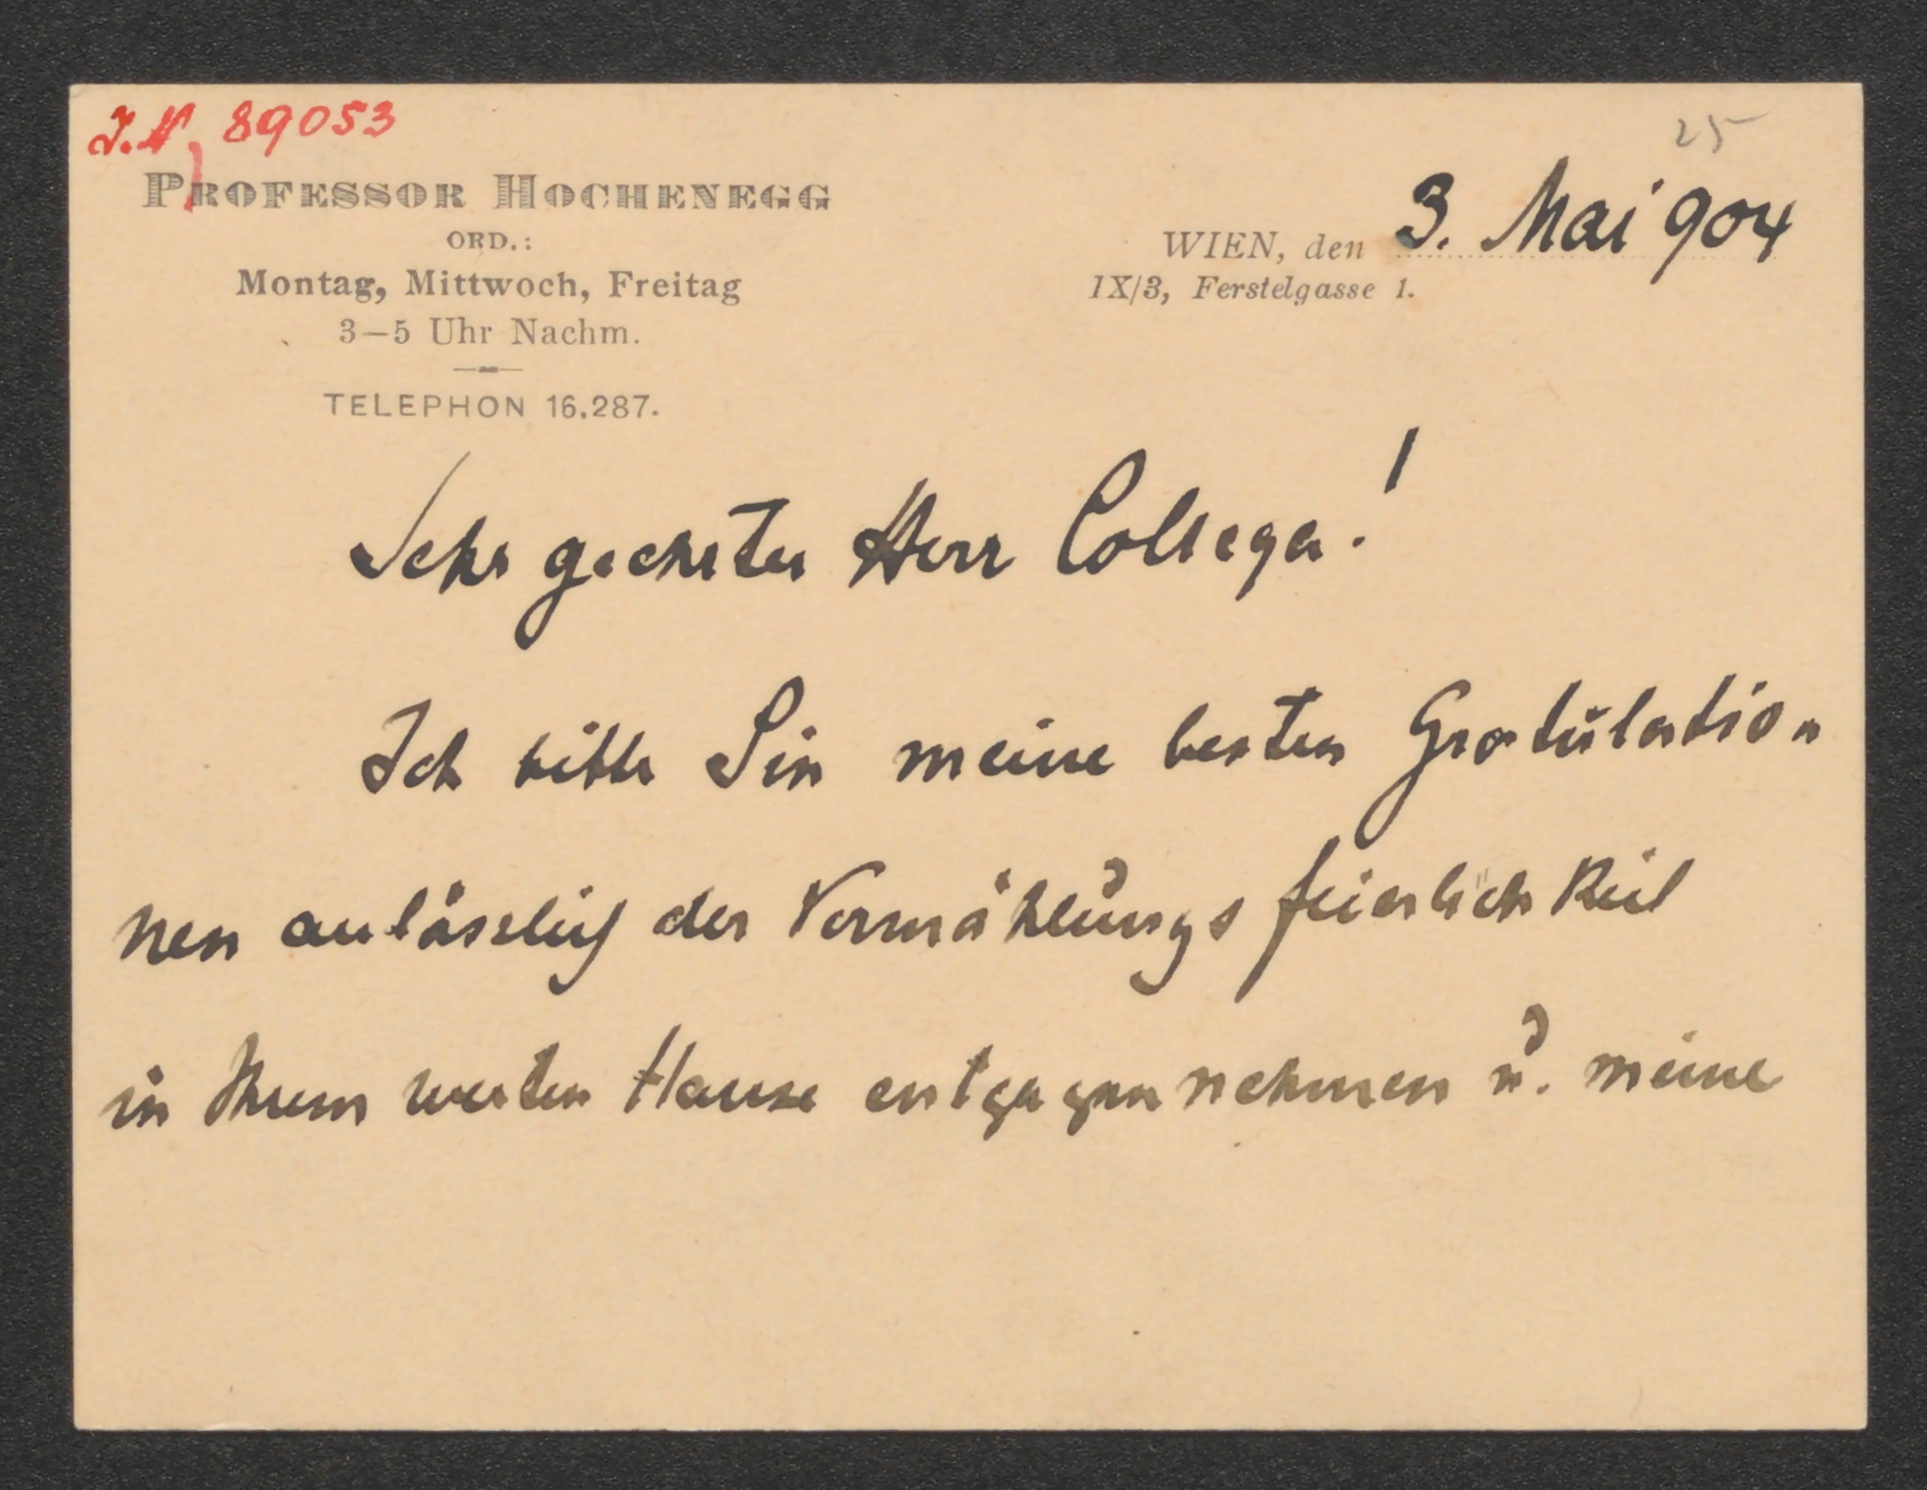 J.N. 89053
25
PROFESSOR HOCHENEGG
ORD.:
Montag, Mittwoch, Freitag
3–5 Uhr Nachm.
TELEPHON 16.287.
WIEN, den 3. Mai 904
IX/3, Ferstelgasse 1.
Sehr geehrter Herr College!
Ich bitte Sie meine besten Gratulatio-
nen anlässlich der Vermählungsfeierlichkeit
in Ihrem werten Hause entgegennehmen u. meine